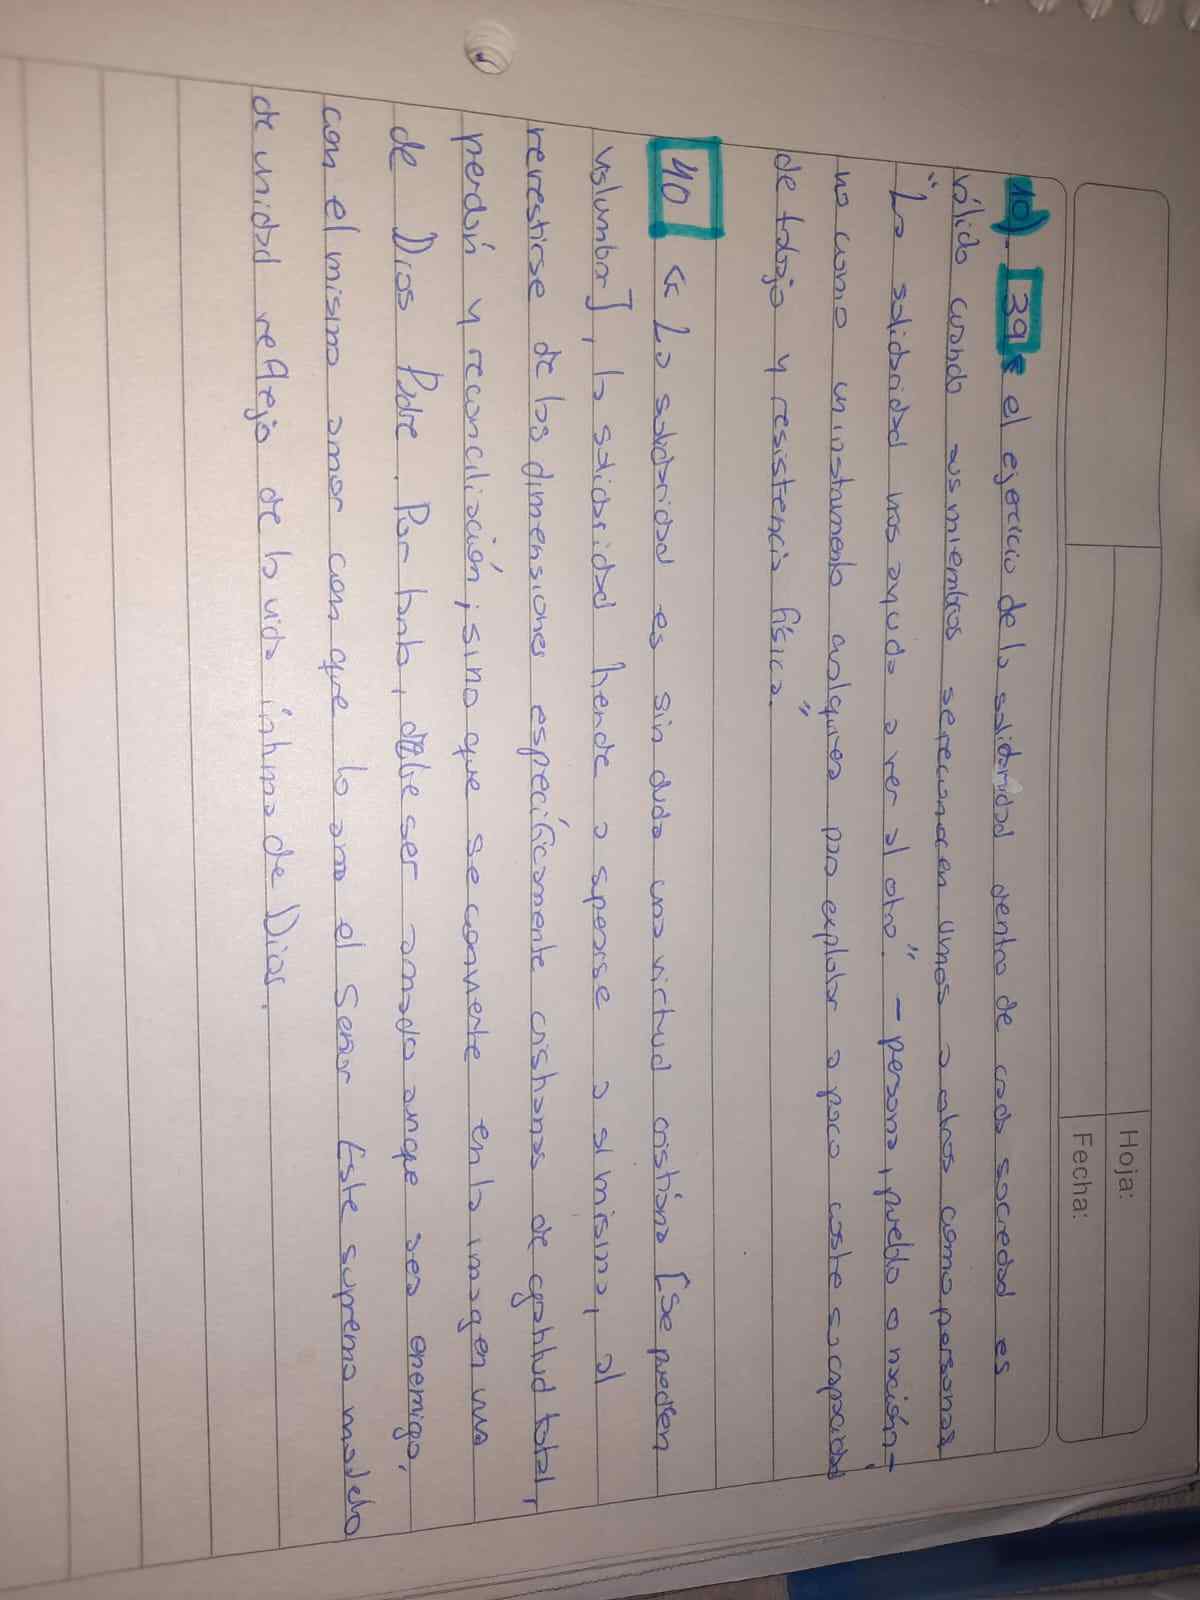 Hoja:
Fecha:
10). 39 « el ejercicio de la solidaridad dentro de cada sociedad es
válido cuando sus miembros se reconocen unos a otros como personas
"La solidaridad nos ayuda a ver al otro". - persona, pueblo o nación-
no como un instrumento cualquiera para explotar a poco coste su capacidad
de trabajo y resistencia física."
40 « La solidaridad es sin duda una virtud cristiana [Se pueden
vislumbrar], la solidaridad tiende a superarse a si misma, al
revestirse de las dimensiones específicamente cristianas de gratitud total,
perdón y reconciliación; sino que se convierte en la imagen viva
de Dios Padre. Por tanto, debe ser amado aunque sea enemigo,
con el mismo amor con que lo ama el Señor Este supremo modelo
de unidad reflejo de la vida íntima de Dios.